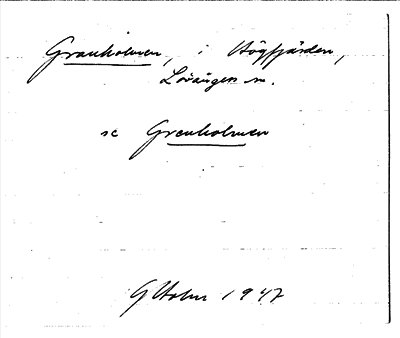 Granholmen, i Högfjärden,
Lövångers sn.
se Grenholmen
G Holm 1947